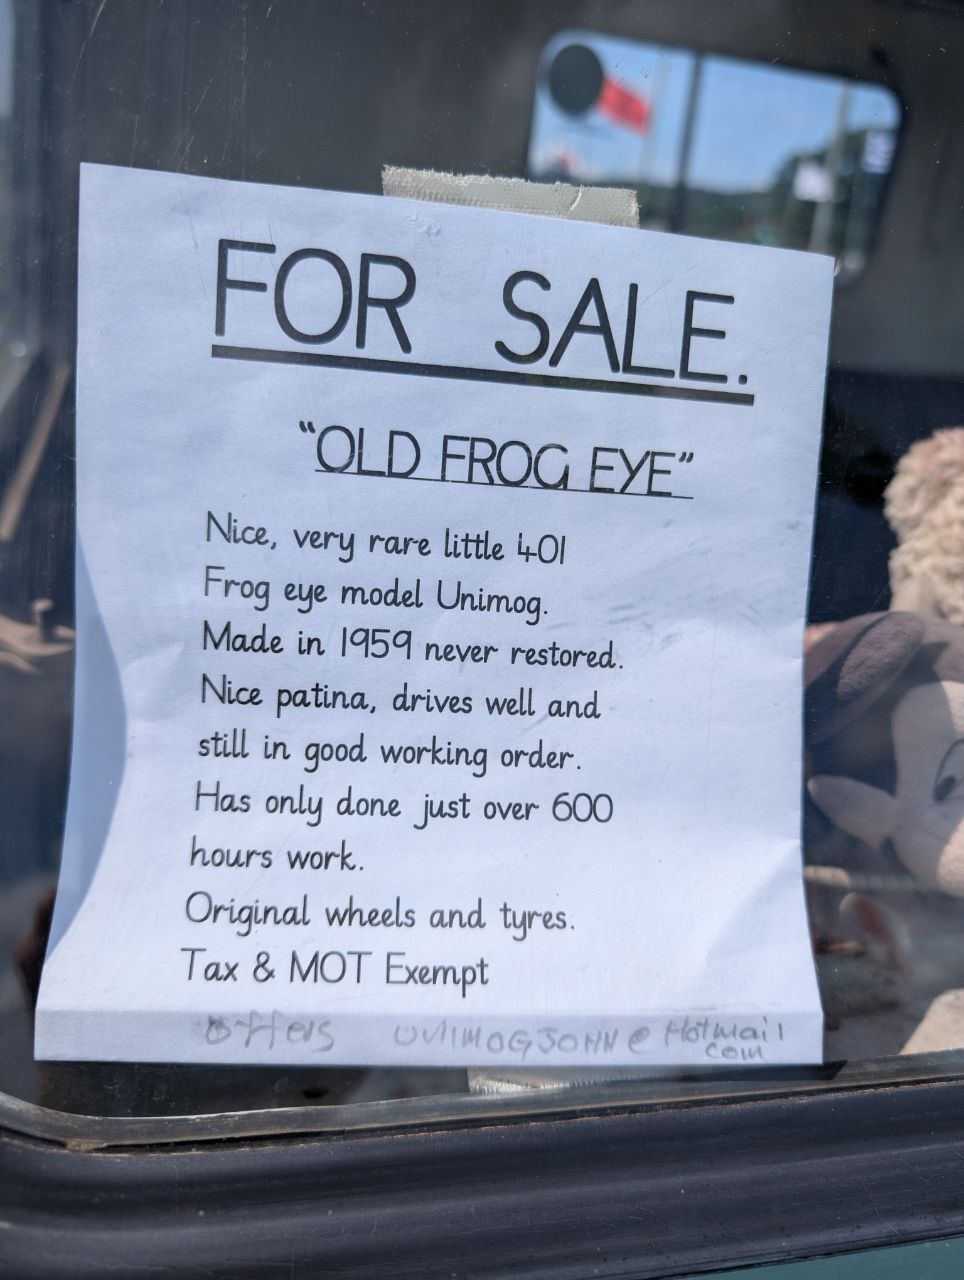 FOR SALE.
“OLD FROG EYE”
Nice, very rare little 401
Frog eye model Unimog.
Made in 1959 never restored.
Nice patina, drives well and
still in good working order.
Has only done just over 600
hours work.
Original wheels and tyres.
Tax & MOT Exempt
Offers UNIMOGJOHN@Hotmail
com